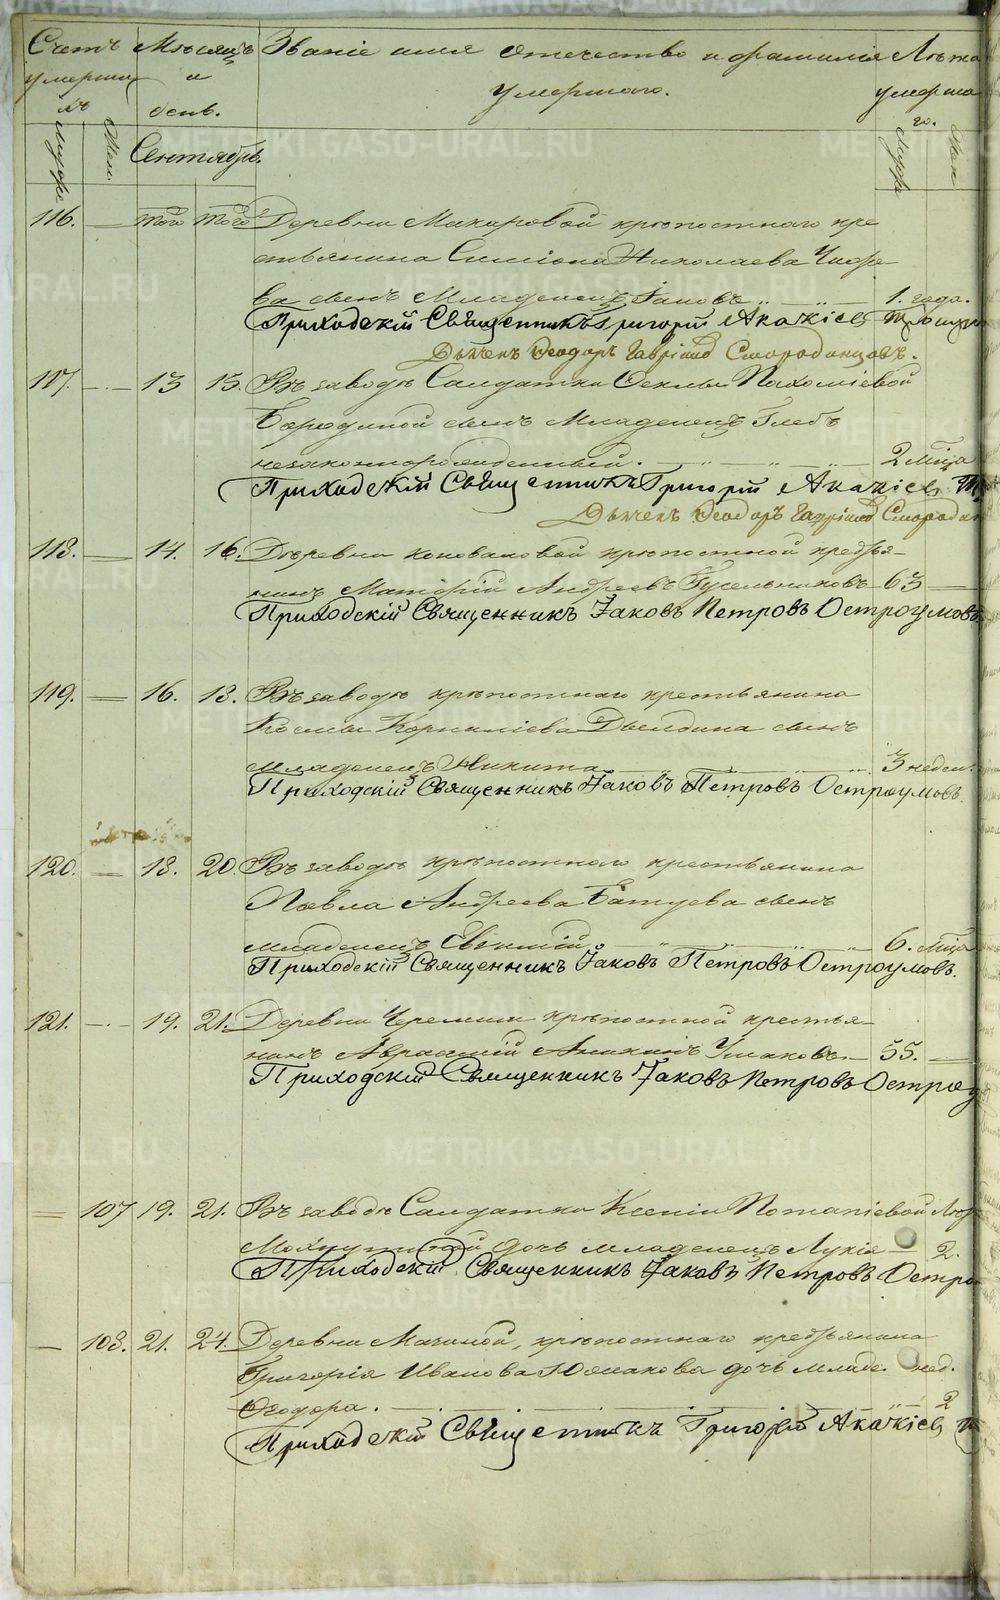 Счетъ Мѣсяцъ Званіе имя отечество и фамилія Лѣта
умерши и умершаго. умерша
хъ день. го.
Муж Жен. Сентябрь. Муж Жен
116. — той того Деревни Макаровой крѣпостнаго кре
стьянина Симіона Николаева
сынъ Младенецъ Іаковъ 1. года.
Приходскій Священникъ Григорій Акакіев
Дьячекъ Феодоръ Гавріиловъ Смородинцовъ.
117. — 13 15. Въ заводѣ Салдатки Феклы Пахоміевой
сынъ Младенецъ Глебъ
незаконнорожденный. 2 мѣца
Приходскій Священникъ Григорій Акакіев
Дьячекъ Феодоръ Гавріиловъ Смородин
118. — 14. 16. Деревни Коноваловой крѣпостной кресть-
янинъ Андреевъ Гусельниковъ 63 —
Приходскій Священникъ Іаковъ Петровъ Остроумовъ.
119. — 16. 18. Въ заводѣ крѣпостнаго крестьянина
Космы Корниліева сынъ
младенецъ Никита 3 недел.
Приходскій Священникъ Іаковъ Петровъ Остроумовъ.
120. — 18. 20. Въ заводѣ крѣпостнаго крестьянина
Павла Андреева Батуева сынъ
младенецъ Евѳимій 6. мѣца
Приходскій Священникъ Іаковъ Петровъ Остроумовъ.
121. — 19. 21. Деревни Черемши крѣпостной крестья-
нинъ Авраамій Аникинъ Ушаковъ 55. —
Приходскій Священникъ Іаковъ Петровъ Остроу
— 107 19. 21. Въ заводѣ Салдатки Ксеніи Потапіевой
дочь младенецъ Лукія 2.
Приходскій Священникъ Іаковъ Петровъ Остро
— 108. 21. 24. Деревни крѣпостнаго крестьянина
Григорія Иванова дочь младе нед.
Ѳеодора. 2
Приходскій Священникъ Григорій Акакіев
METRIKI.GASO-URAL.RU